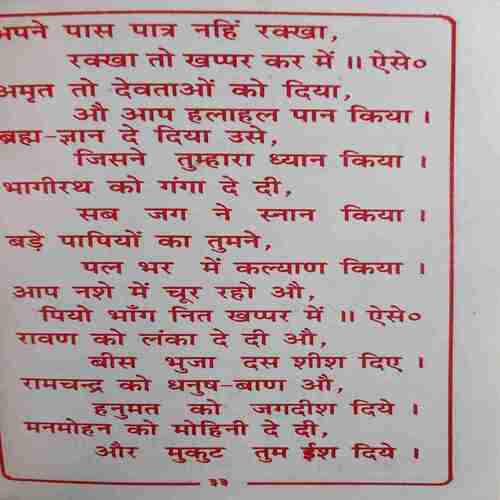 अपने पास पात्र नहिं रक्खा,
रक्खा तो खप्पर कर में ॥ ऐसे०
अमृत तो देवताओं को दिया,
औ आप हलाहल पान किया ।
ब्रह्म-ज्ञान दे दिया उसे,
जिसने तुम्हारा ध्यान किया ।
भागीरथ को गंगा दे दी,
सब जग ने स्नान किया ।
बड़े पापियों का तुमने,
पल भर में कल्याण किया ।
आप नशे में चूर रहो औ,
पियो भाँग नित खप्पर में ॥ ऐसे०
रावण को लंका दे दी औ,
बीस भुजा दस शीश दिए ।
रामचन्द्र को धनुष-बाण औ,
हनुमत को जगदीश दिये ।
मनमोहन को मोहिनी दे दी,
और मुकुट तुम ईश दिये ।
३३